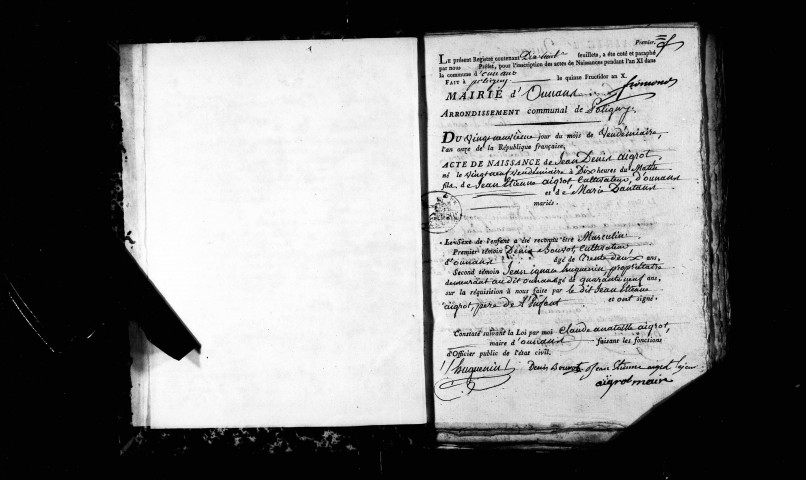 Premier.
LE présent Registre contenant Dix huit feuillets, a été coté et paraphé
par nous Préfet, pour l'inscription des actes de Naissances pendant l'an XI dans
la commune d'ounans
FAIT à poligny le quinze Fructidor an X.
MAIRIE d'Ounans
ARRONDISSEMENT communal de Poligny.
DU vingt neuvième jour du mois de Vendémiaire,
l'an onze de la République française,
ACTE DE NAISSANCE de Jean Denis aigrot,
né le vingt neuf vendémiaire à Dix heures du Matin
fils de Jean Etienne aigrot Cultivateur, d'ounans
et de Marie Dautans
mariés.
Le sexe de l'enfant a été reconnu être Masculin
Premier témoin Denis Bouvot, Cultivateur
d'ounans âgé de trente deux ans,
Second témoin Jean ignace huguenin propriétaire
demeurant au dit ounans âgé de quarante neuf ans,
sur la réquisition à nous faite par le dit Jean Etienne
aigrot, père de l'Enfant et ont signé.
Constaté suivant la Loi par moi Claude anatoille aigrot,
maire d'ounans faisant les fonctions
d'Officier public de l'état civil,
huguenin Denis Bouvot Jean Etienne aigrot
aigrot maire